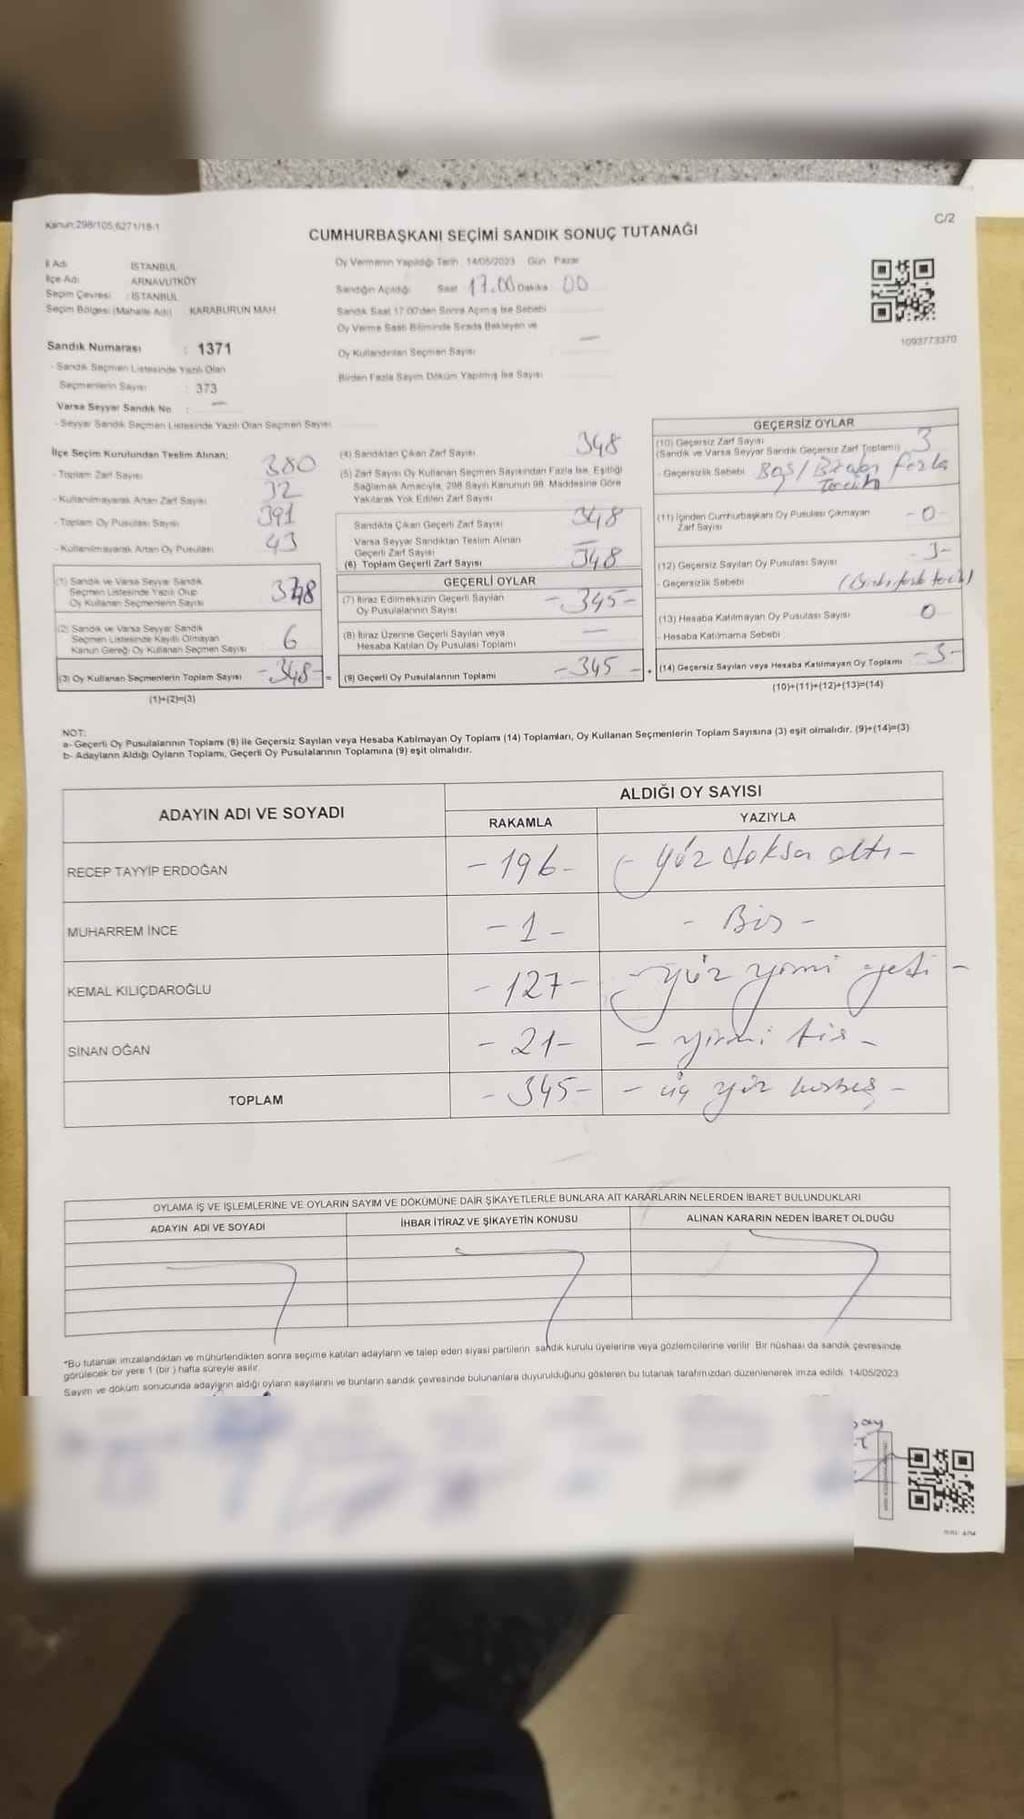 Kanun:298/105;6271/18-1
C/2
CUMHURBAŞKANI SEÇİMİ SANDIK SONUÇ TUTANAĞI
İl Adı : İSTANBUL
İlçe Adı : ARNAVUTKÖY
Seçim Çevresi : İSTANBUL
Seçim Bölgesi (Mahalle Adı) KARABURUN MAH
Sandık Numarası : 1371
- Sandık Seçmen Listesinde Yazılı Olan
Seçmenlerin Sayısı : 373
Varsa Seyyar Sandık No : —
- Seyyar Sandık Seçmen Listesinde Yazılı Olan Seçmen Sayısı
Oy Vermenin Yapıldığı Tarih 14/05/2023 Gün Pazar
Sandığın Açıldığı Saat 17.00 Dakika 00
Sandık Saat 17:00'den Sonra Açılmış İse Sebebi
Oy Verme Saati Bitiminde Sırada Bekleyen ve
Oy Kullandırılan Seçmen Sayısı —
Birden Fazla Sayım Döküm Yapılmış İse Sayısı
1093773370
İlçe Seçim Kurulundan Teslim Alınan;
- Toplam Zarf Sayısı 380
- Kullanılmayarak Artan Zarf Sayısı 32
- Toplam Oy Pusulası Sayısı 391
- Kullanılmayarak Artan Oy Pusulası 43
(1) Sandık ve Varsa Seyyar Sandık
Seçmen Listesinde Yazılı Olup
Oy Kullanan Seçmenlerin Sayısı
(2) Sandık ve Varsa Seyyar Sandık
Seçmen Listesinde Kayıtlı Olmayan
Kanun Gereği Oy Kullanan Seçmen Sayısı 6
(3) Oy Kullanan Seçmenlerin Toplam Sayısı -348- =
(1)+(2)=(3)
(4) Sandıktan Çıkan Zarf Sayısı 348
(5) Zarf Sayısı Oy Kullanan Seçmen Sayısından Fazla İse, Eşitliği
Sağlamak Amacıyla, 298 Sayılı Kanunun 98. Maddesine Göre
Yakılarak Yok Edilen Zarf Sayısı
Sandıkta Çıkan Geçerli Zarf Sayısı 348
Varsa Seyyar Sandıktan Teslim Alınan
Geçerli Zarf Sayısı —
(6) Toplam Geçerli Zarf Sayısı 348
GEÇERLİ OYLAR
(7) İtiraz Edilmeksizin Geçerli Sayılan
Oy Pusulalarının Sayısı -345-
(8) İtiraz Üzerine Geçerli Sayılan veya
Hesaba Katılan Oy Pusulası Toplamı —
(9) Geçerli Oy Pusulalarının Toplamı -345-
GEÇERSİZ OYLAR
(10) Geçersiz Zarf Sayısı
(Sandık ve Varsa Seyyar Sandık Geçersiz Zarf Toplamı) 3
- Geçersizlik Sebebi Boş/Birden fazla
Tercih
(11) İçinden Cumhurbaşkanı Oy Pusulası Çıkmayan
Zarf Sayısı -0-
(12) Geçersiz Sayılan Oy Pusulası Sayısı -3-
- Geçersizlik Sebebi
(13) Hesaba Katılmayan Oy Pusulası Sayısı 0
- Hesaba Katılmama Sebebi
(14) Geçersiz Sayılan veya Hesaba Katılmayan Oy Toplamı -3-
(10)+(11)+(12)+(13)=(14)
NOT:
a- Geçerli Oy Pusulalarının Toplamı (9) ile Geçersiz Sayılan veya Hesaba Katılmayan Oy Toplamı (14) Toplamları, Oy Kullanan Seçmenlerin Toplam Sayısına (3) eşit olmalıdır. (9)+(14)=(3)
b- Adayların Aldığı Oyların Toplamı, Geçerli Oy Pusulalarının Toplamına (9) eşit olmalıdır.
ADAYIN ADI VE SOYADI
ALDIĞI OY SAYISI
RAKAMLA YAZIYLA
RECEP TAYYİP ERDOĞAN -196- - yüz doksan altı -
MUHARREM İNCE -1- - Bir -
KEMAL KILIÇDAROĞLU -127- - yüz yirmi yedi -
SİNAN OĞAN -21- - yirmi bir -
TOPLAM -345- - üç yüz kırkbeş -
OYLAMA İŞ VE İŞLEMLERİNE VE OYLARIN SAYIM VE DÖKÜMÜNE DAİR ŞİKAYETLERLE BUNLARA AİT KARARLARIN NELERDEN İBARET BULUNDUKLARI
ADAYIN ADI VE SOYADI İHBAR İTİRAZ VE ŞİKAYETİN KONUSU ALINAN KARARIN NEDEN İBARET OLDUĞU
*Bu tutanak imzalandıktan ve mühürlendikten sonra seçime katılan adayların ve talep eden siyasi partilerin sandık kurulu üyelerine veya gözlemcilerine verilir. Bir nüshası da sandık çevresinde
görülecek bir yere 1 (bir) hafta süreyle asılır.
Sayım ve döküm sonucunda adayların aldığı oyların sayılarını ve bunların sandık çevresinde bulunanlara duyurulduğunu gösteren bu tutanak tarafımızdan düzenlenerek imza edildi. 14/05/2023